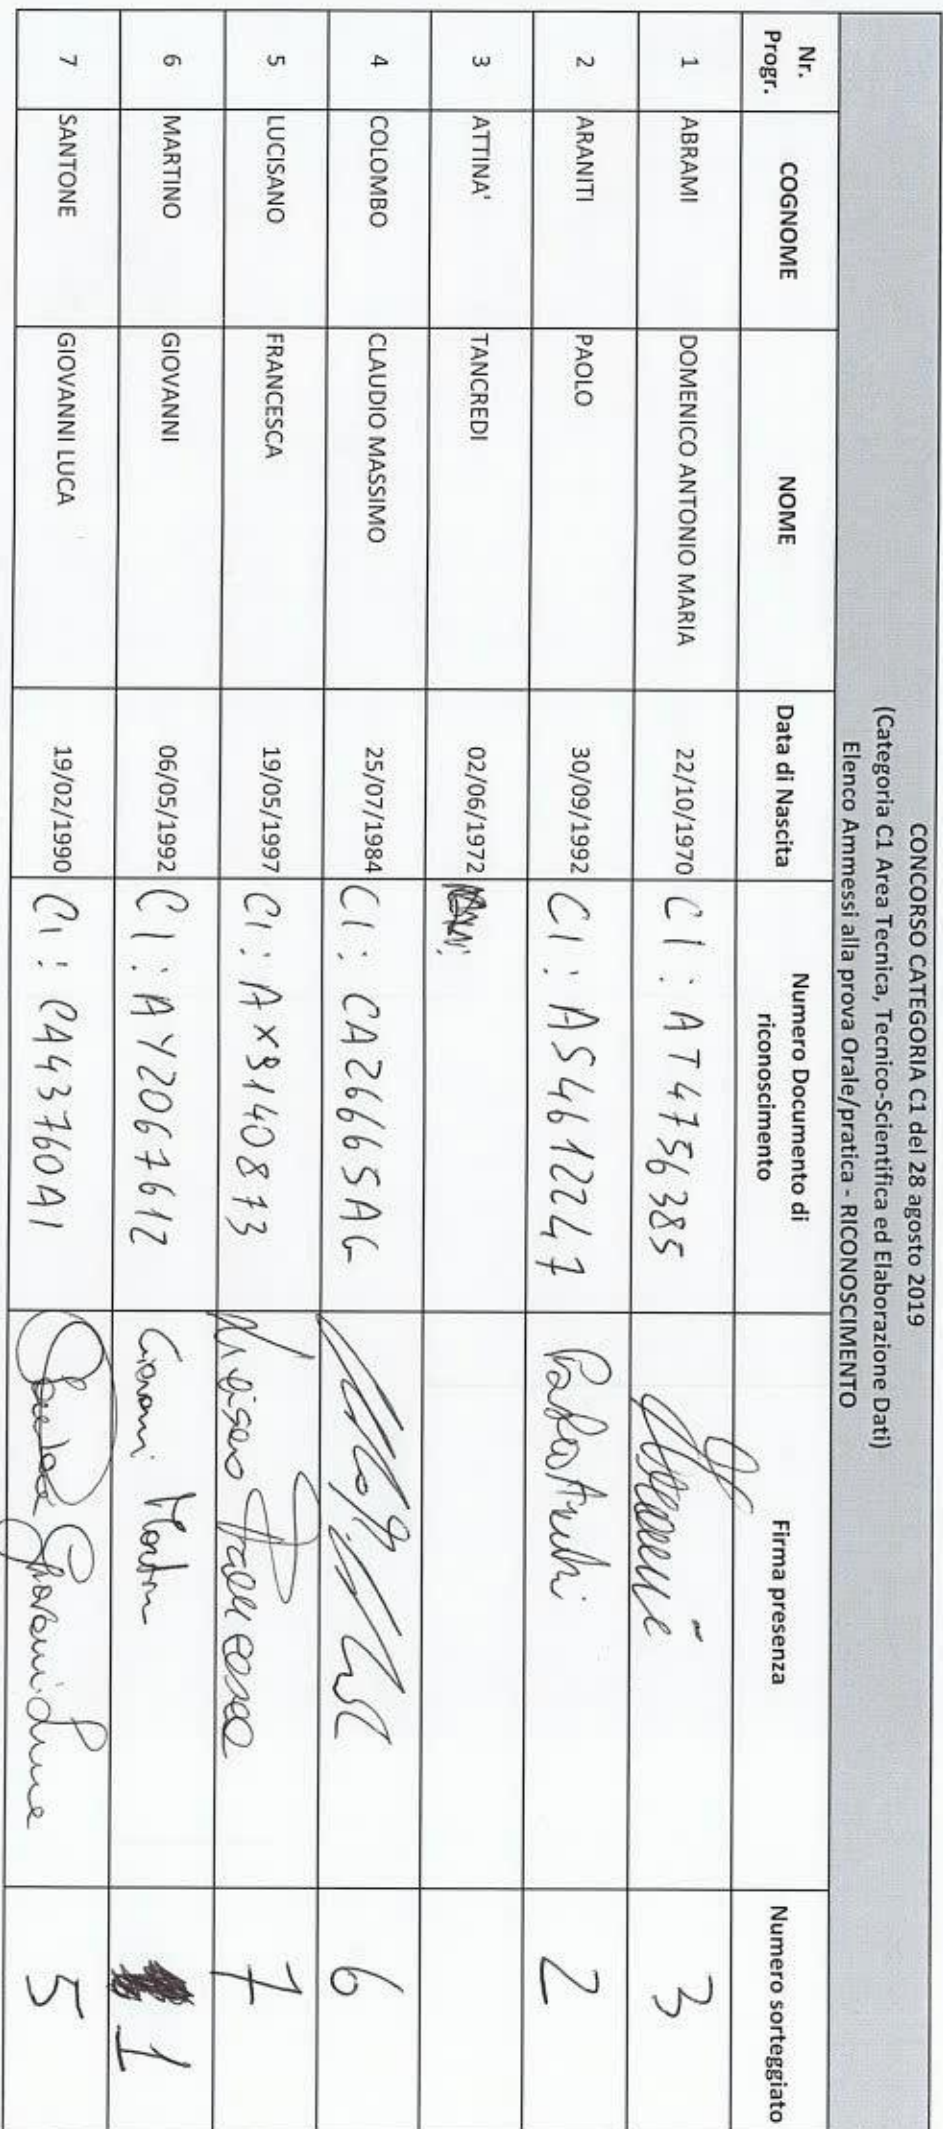 CONCORSO CATEGORIA C1 del 28 agosto 2019
(Categoria C1 Area Tecnica, Tecnico-Scientifica ed Elaborazione Dati)
Elenco Ammessi alla prova Orale/pratica - RICONOSCIMENTO
Nr. Progr. COGNOME NOME Data di Nascita Numero Documento di riconoscimento Firma presenza Numero sorteggiato
1 ABRAMI DOMENICO ANTONIO MARIA 22/10/1970 CI: AT4756385 3
2 ARANITI PAOLO 30/09/1992 CI: AS4612247 2
3 ATTINA' TANCREDI 02/06/1972
4 COLOMBO CLAUDIO MASSIMO 25/07/1984 CI: CA26665AG 6
5 LUCISANO FRANCESCA 19/05/1997 CI: AX9140873 Francesca 7
6 MARTINO GIOVANNI 06/05/1992 CI: AY2067612 Giovanni Martino 1
7 SANTONE GIOVANNI LUCA 19/02/1990 CI: CA43760AI 5